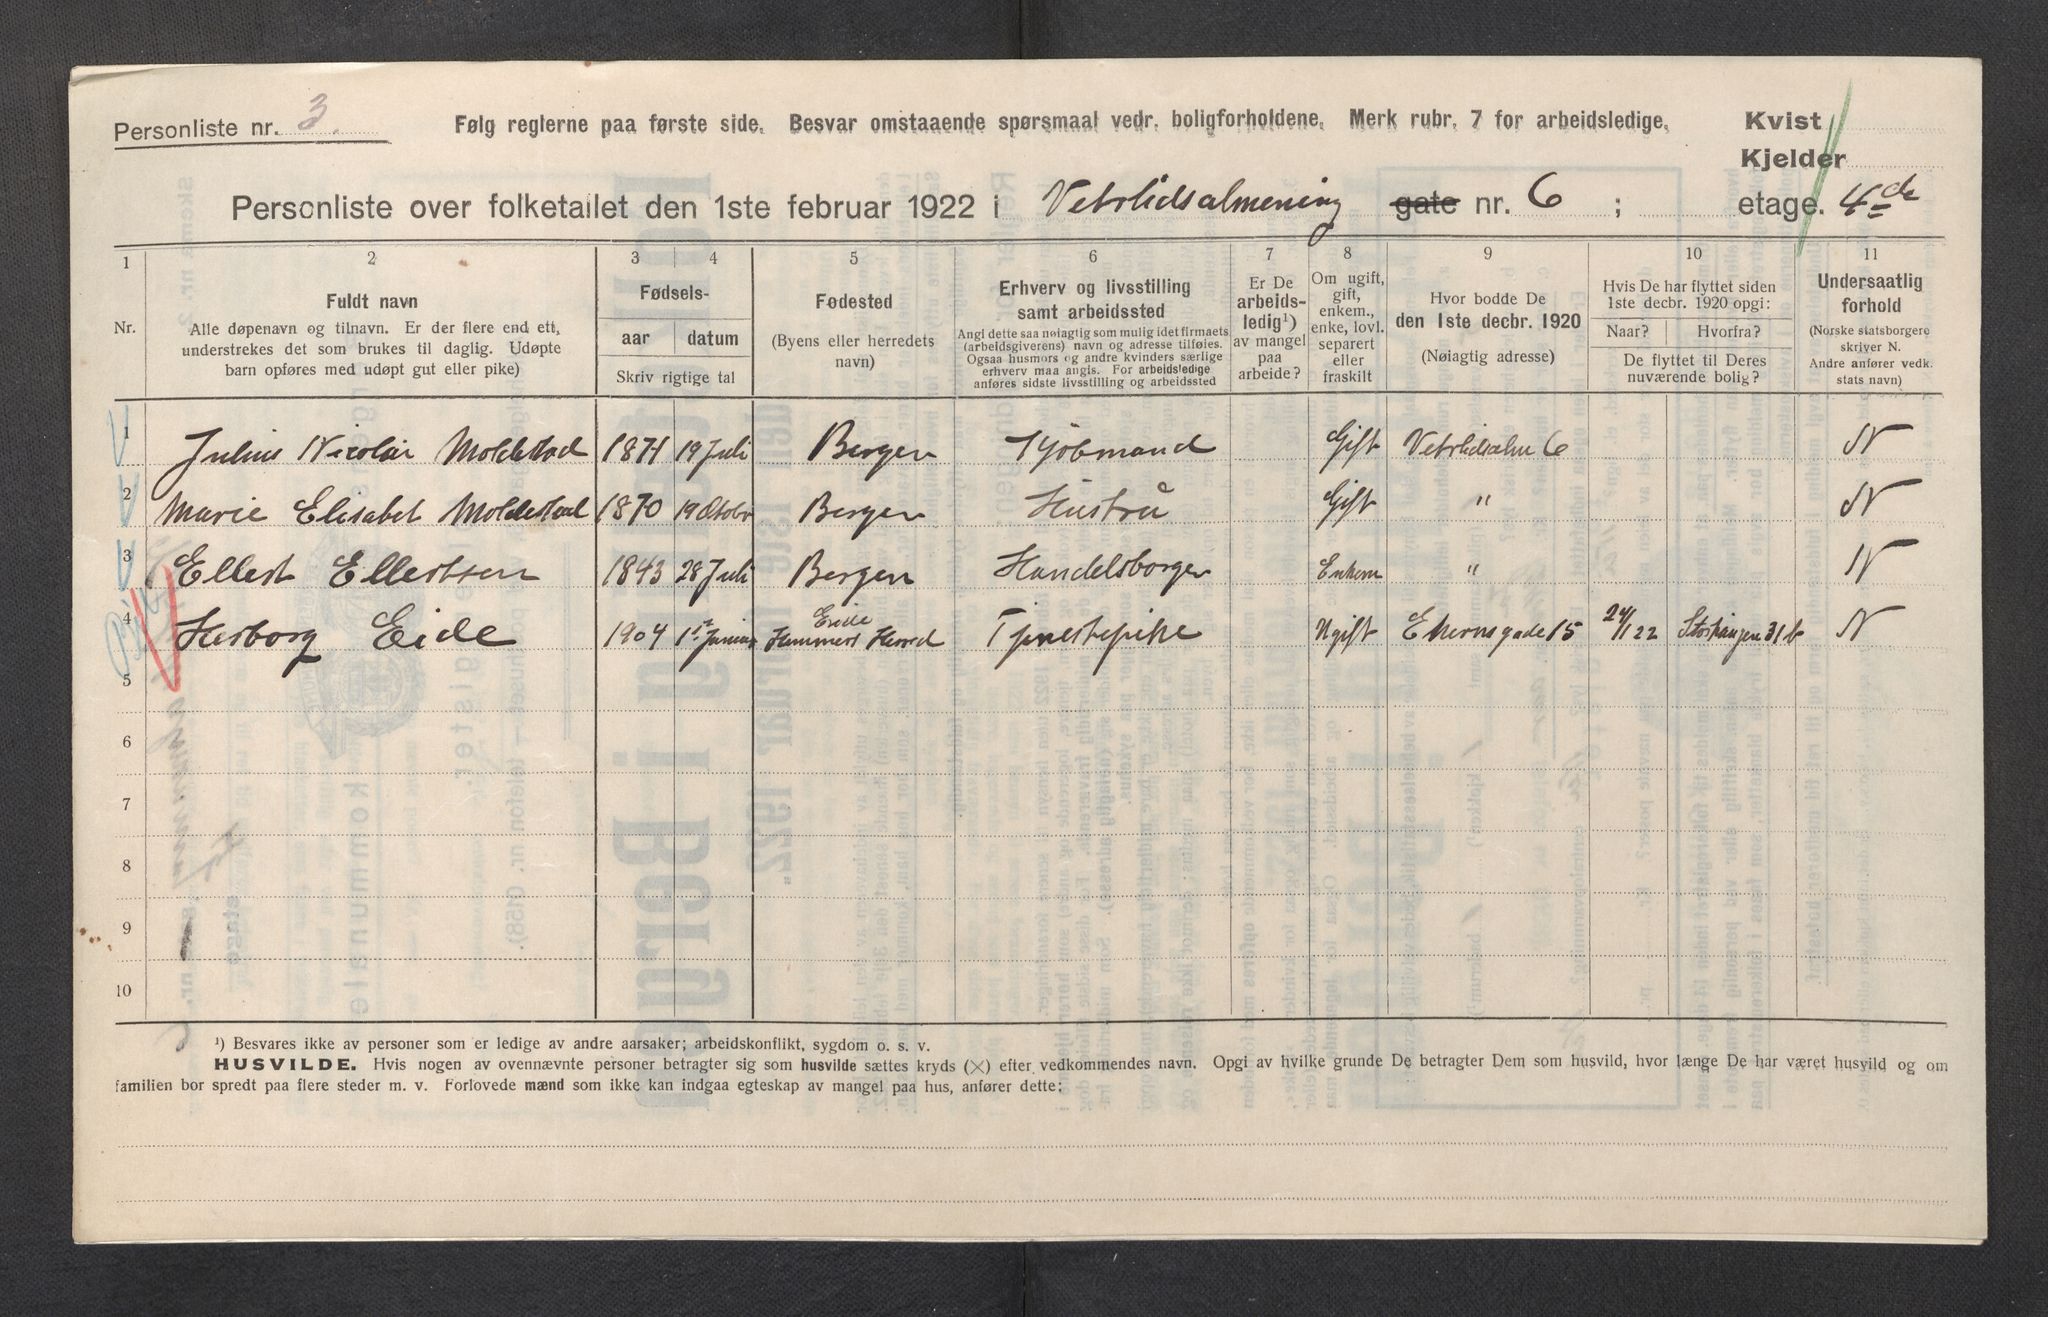 Personliste nr. 3.
Følg reglerne paa første side. Besvar omstaaende spørsmaal vedr. boligforholdene. Merk rubr. 7 for arbeidsledige.
Kvist
Kjelder
Personliste over folketallet den 1ste februar 1922 i Vetrlidsalmening gate nr. 6 ; etage. 4de
1 2 3 4 5 6 7 8 9 10 11
Nr.
Fuldt navn
Alle døpenavn og tilnavn. Er der flere end ett,
understrekes det som brukes til daglig. Udøpte
barn opføres med udøpt gut eller pike)
Fødsels-
aar datum
Skriv rigtige tal
Fødested
(Byens eller herredets
navn)
Erhverv og livsstilling
samt arbeidssted
Angi dette saa nøiagtig som mulig idet firmaets
(arbeidsgiverens) navn og adresse tilføies.
Ogsaa husmors og andre kvinders særlige
erhverv maa angis. For arbeidsledige
anføres sidste livsstilling og arbeidssted
Er De
arbeids-
ledig¹)
av mangel
paa
arbeide?
Om ugift,
gift,
enkem.,
enke, lovl.
separert
eller
fraskilt
Hvor bodde De
den 1ste decbr. 1920
(Nøiagtig adresse)
Hvis De har flyttet siden
1ste decbr. 1920 opgi:
Naar? Hvorfra?
De flyttet til Deres
nuværende bolig?
Undersaatlig
forhold
(Norske statsborgere
skriver N.
Andre anfører vedk.
stats navn)
1 Julius Nicolai Moldestad 1871 19 Juli Bergen Kjøbmand Gift Vetrlidsalm 6 N
2 Marie Elisabet Moldestad 1870 19 Oktobr Bergen Hustru Gift " N
3 Ellert Ellertsen 1843 28 Juli Bergen Handelsborger Enkem " N
4 Herborg Eide 1904 1ste Eide Hammers Herred Tjenestepike Ugift Ekernsgade 15 24/1 22 31b N
5
6
7
8
9
10
¹) Besvares ikke av personer som er ledige av andre aarsaker; arbeidskonflikt, sygdom o. s. v.
HUSVILDE. Hvis nogen av ovennævnte personer betragter sig som husvilde sættes kryds (×) efter vedkommendes navn. Opgi av hvilke grunde De betragter Dem som husvild, hvor længe De har været husvild og om
familien bor spredt paa flere steder m. v. Forlovede mænd som ikke kan indgaa egteskap av mangel paa hus, anfører dette: